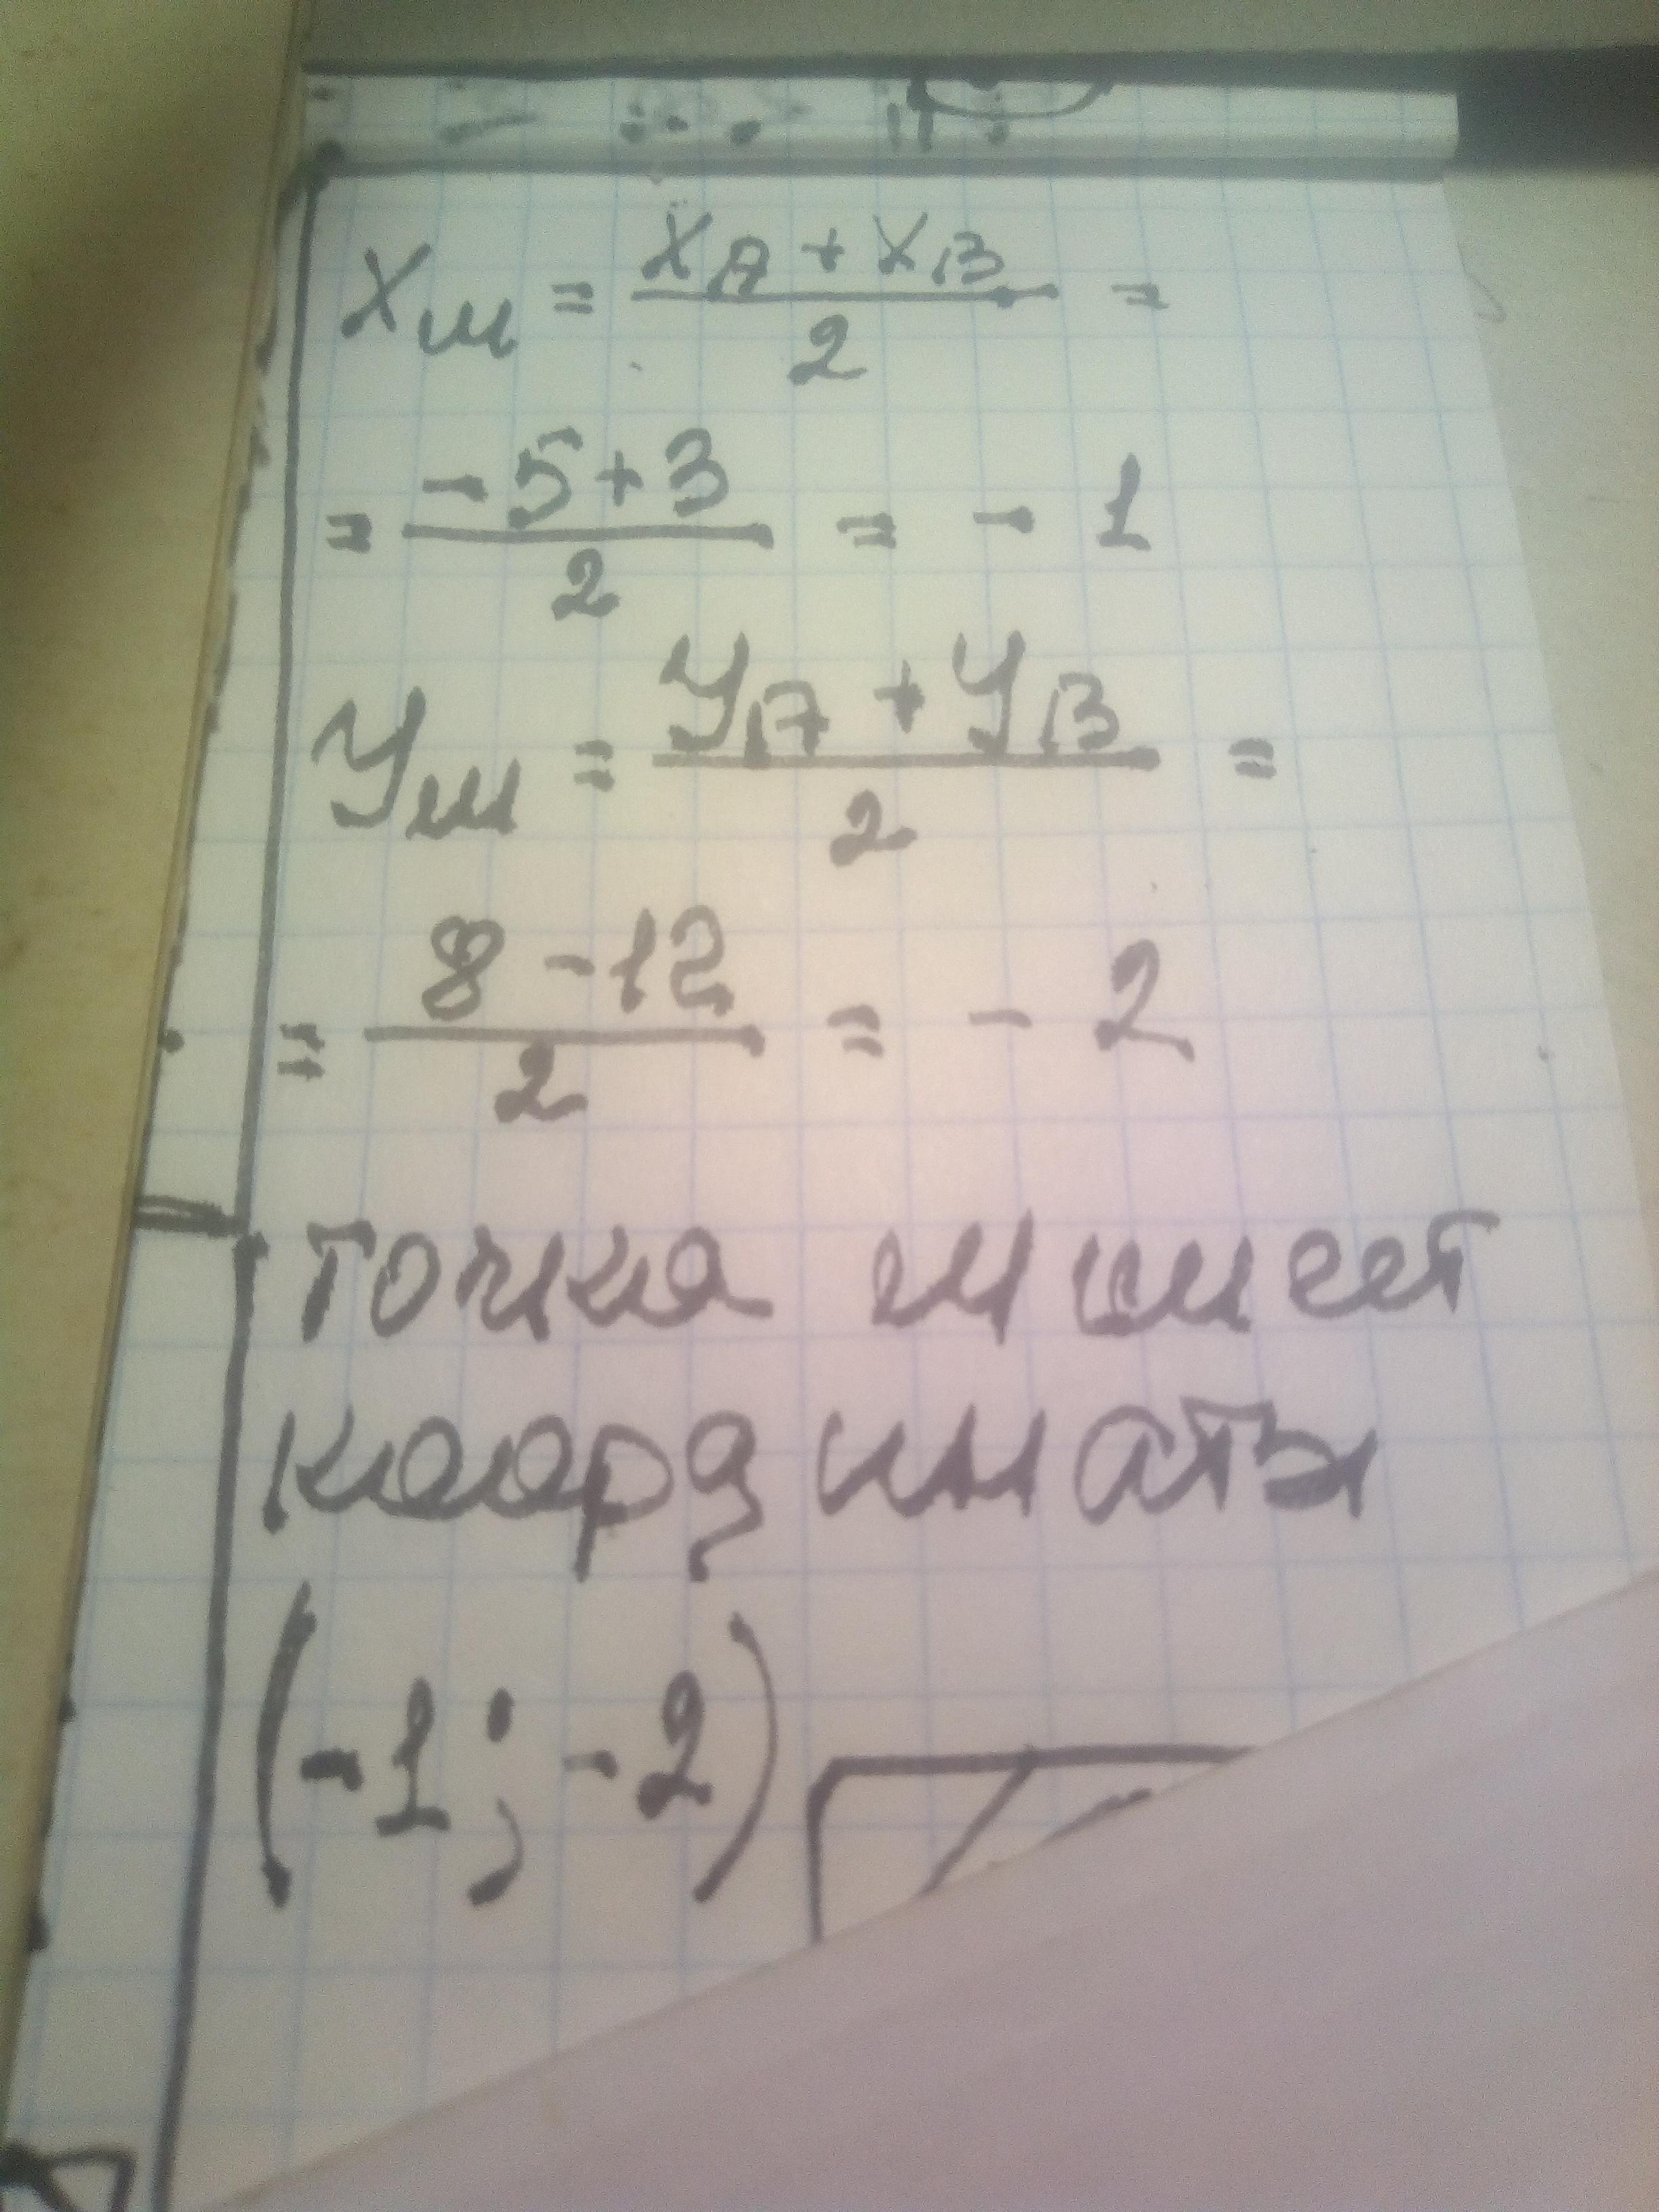 Xм = XA + XB / 2 =
= -5+3 / 2 = - 1
Yм = YA + YB / 2 =
= 8 -12 / 2 = - 2
точка м имеет
координаты
(-1; -2)